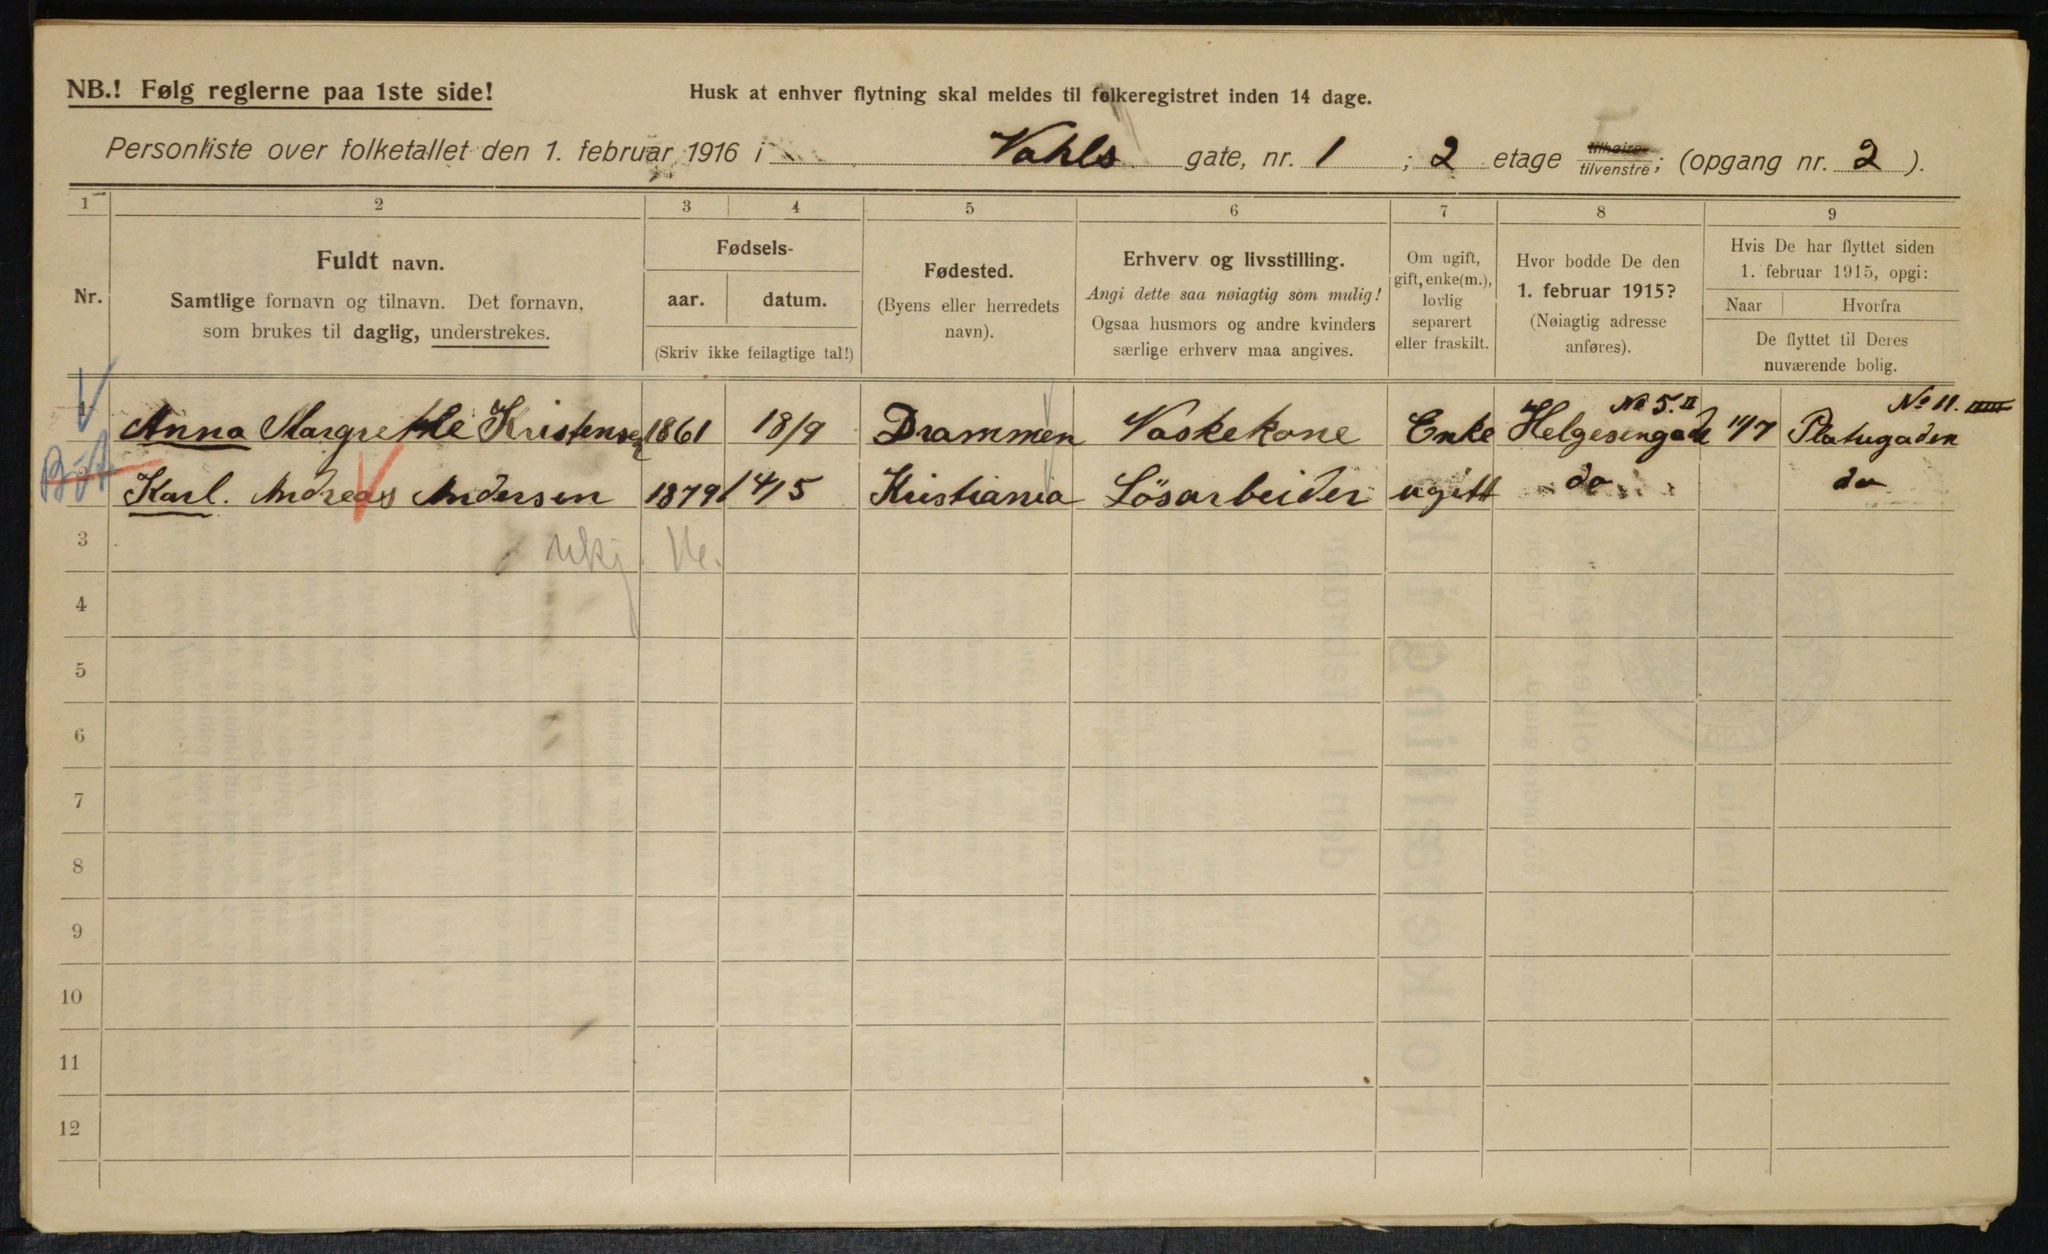 NB.! Følg reglerne paa 1ste side!
Husk at enhver flytning skal meldes til folkeregistret inden 14 dage.
Personliste over folketallet den 1. februar 1916 i Vahls gate, nr. 1 ; 2 etage tilhøire tilvenstre; (opgang nr. 2 ).
1 2 3 4 5 6 7 8 9
Nr.
Fuldt navn.
Samtlige fornavn og tilnavn. Det fornavn,
som brukes til daglig, understrekes.
Fødsels-
aar. datum.
(Skriv ikke feilagtige tal!)
Fødested.
(Byens eller herredets
navn).
Erhverv og livsstilling.
Angi dette saa nøiagtig som mulig!
Ogsaa husmors og andre kvinders
særlige erhverv maa angives.
Om ugift,
gift, enke(m.),
lovlig
separert
eller fraskilt.
Hvor bodde De den
1. februar 1915?
(Nøiagtig adresse
anføres).
Hvis De har flyttet siden
1. februar 1915, opgi:
Naar Hvorfra
De flyttet til Deres
nuværende bolig.
1 Anna Margrethe Kristensen 1861 18/9 Drammen Vaskekone Enke Helgesengade No 5. II Platugaden No 11.
Karl. Andreas Andersen 1879 14/5 Kristiania Lösarbeider ugitt do do
3
4
5
6
7
8
9
10
11
12